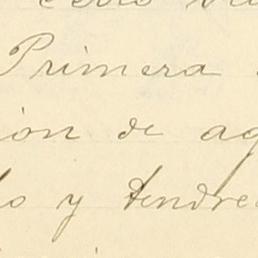 Primera
ion de ag
lo y tendre